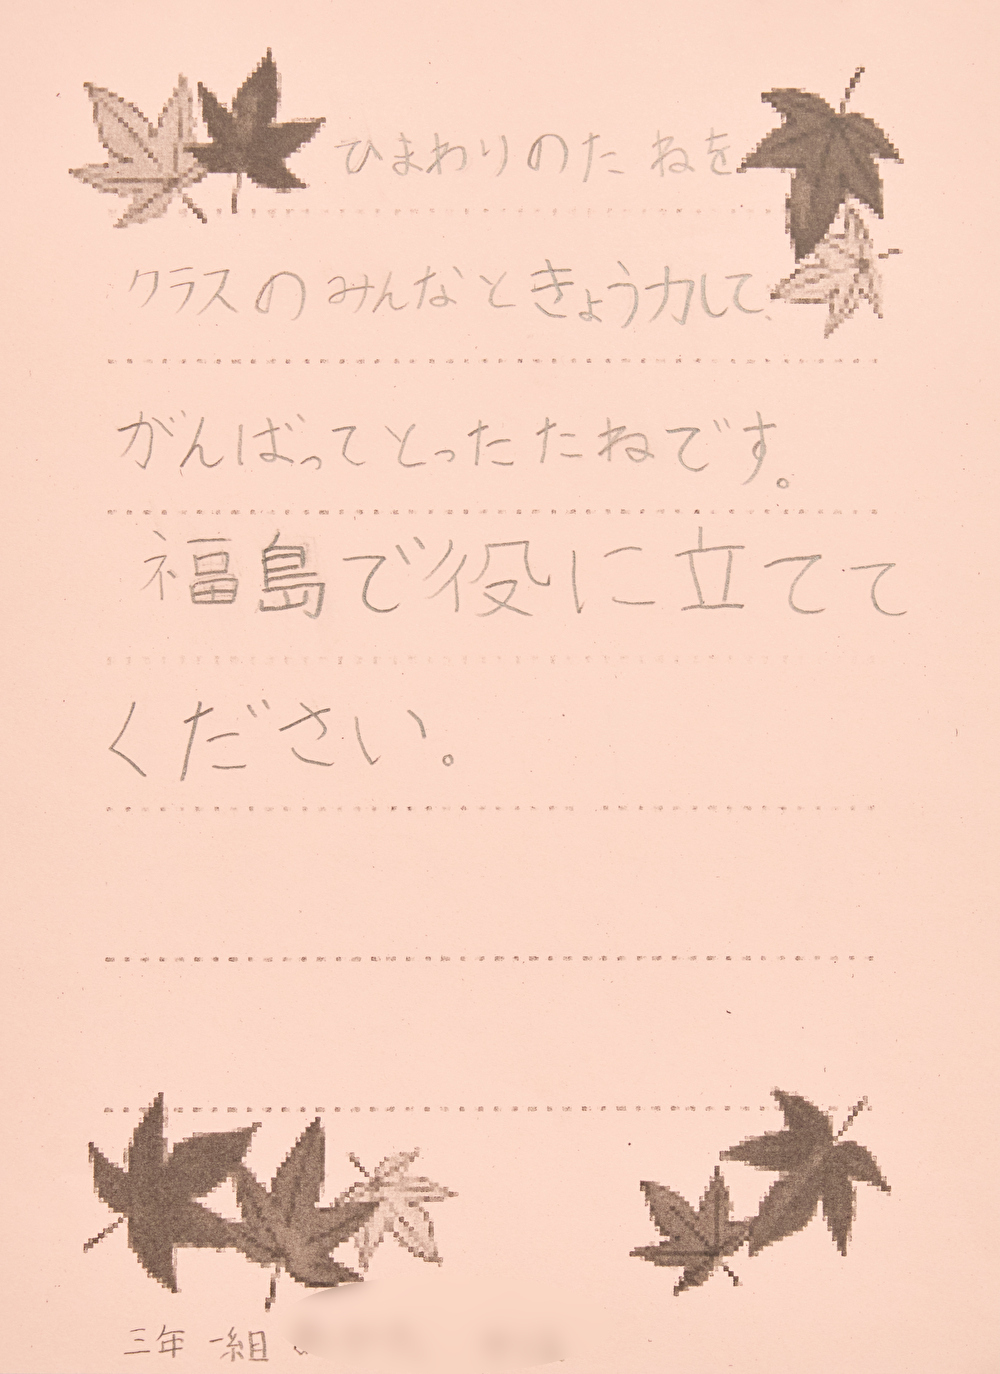 ひまわりのたねを
クラスのみんなときょう力して、
がんばってとったたねです。
福島で役に立てて
ください。
三年 一組